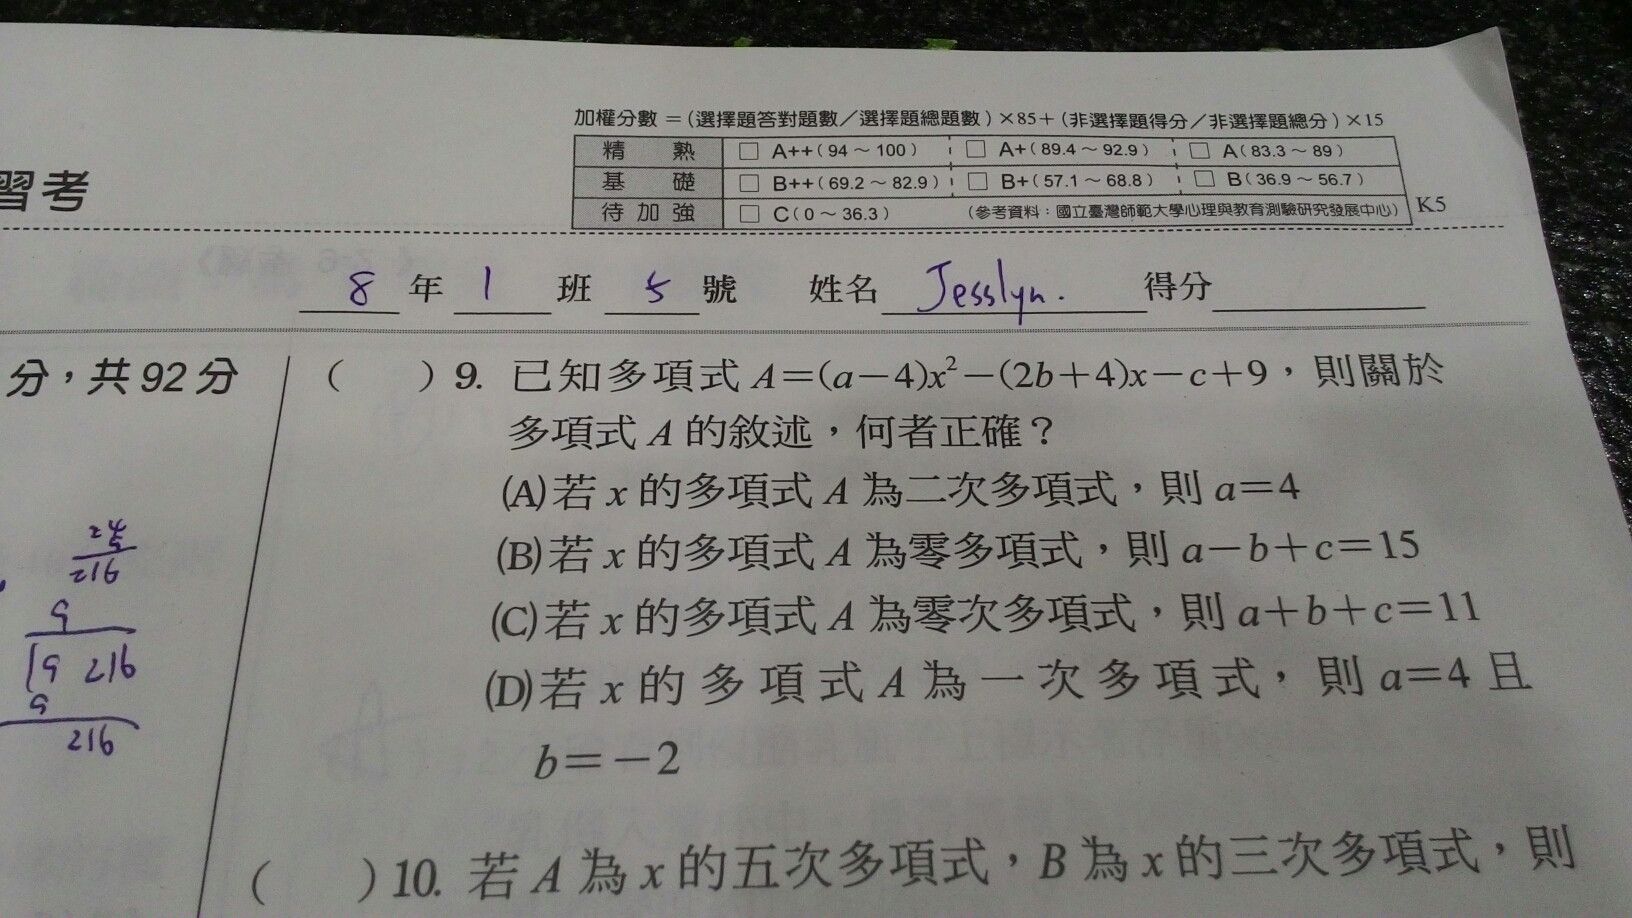 加權分數＝(選擇題答對題數／選擇題總題數)×85＋(非選擇題得分／非選擇題總分)×15
精 熟 □ A++(94～100) □ A+(89.4～92.9) □ A(83.3～89)
基 礎 □ B++(69.2～82.9) □ B+(57.1～68.8) □ B(36.9～56.7)
待加強 □ C(0～36.3) (參考資料：國立臺灣師範大學心理與教育測驗研究發展中心)
K5
習考
8 年 1 班 5 號 姓名 Jesslyn. 得分
分，共92分
( ) 9. 已知多項式A=(a−4)x²−(2b+4)x−c+9，則關於
多項式A的敘述，何者正確？
(A)若x的多項式A為二次多項式，則a=4
(B)若x的多項式A為零多項式，則a−b+c=15
(C)若x的多項式A為零次多項式，則a+b+c=11
(D)若x的多項式A為一次多項式，則a=4且
b=−2
( ) 10. 若A為x的五次多項式，B為x的三次多項式，則